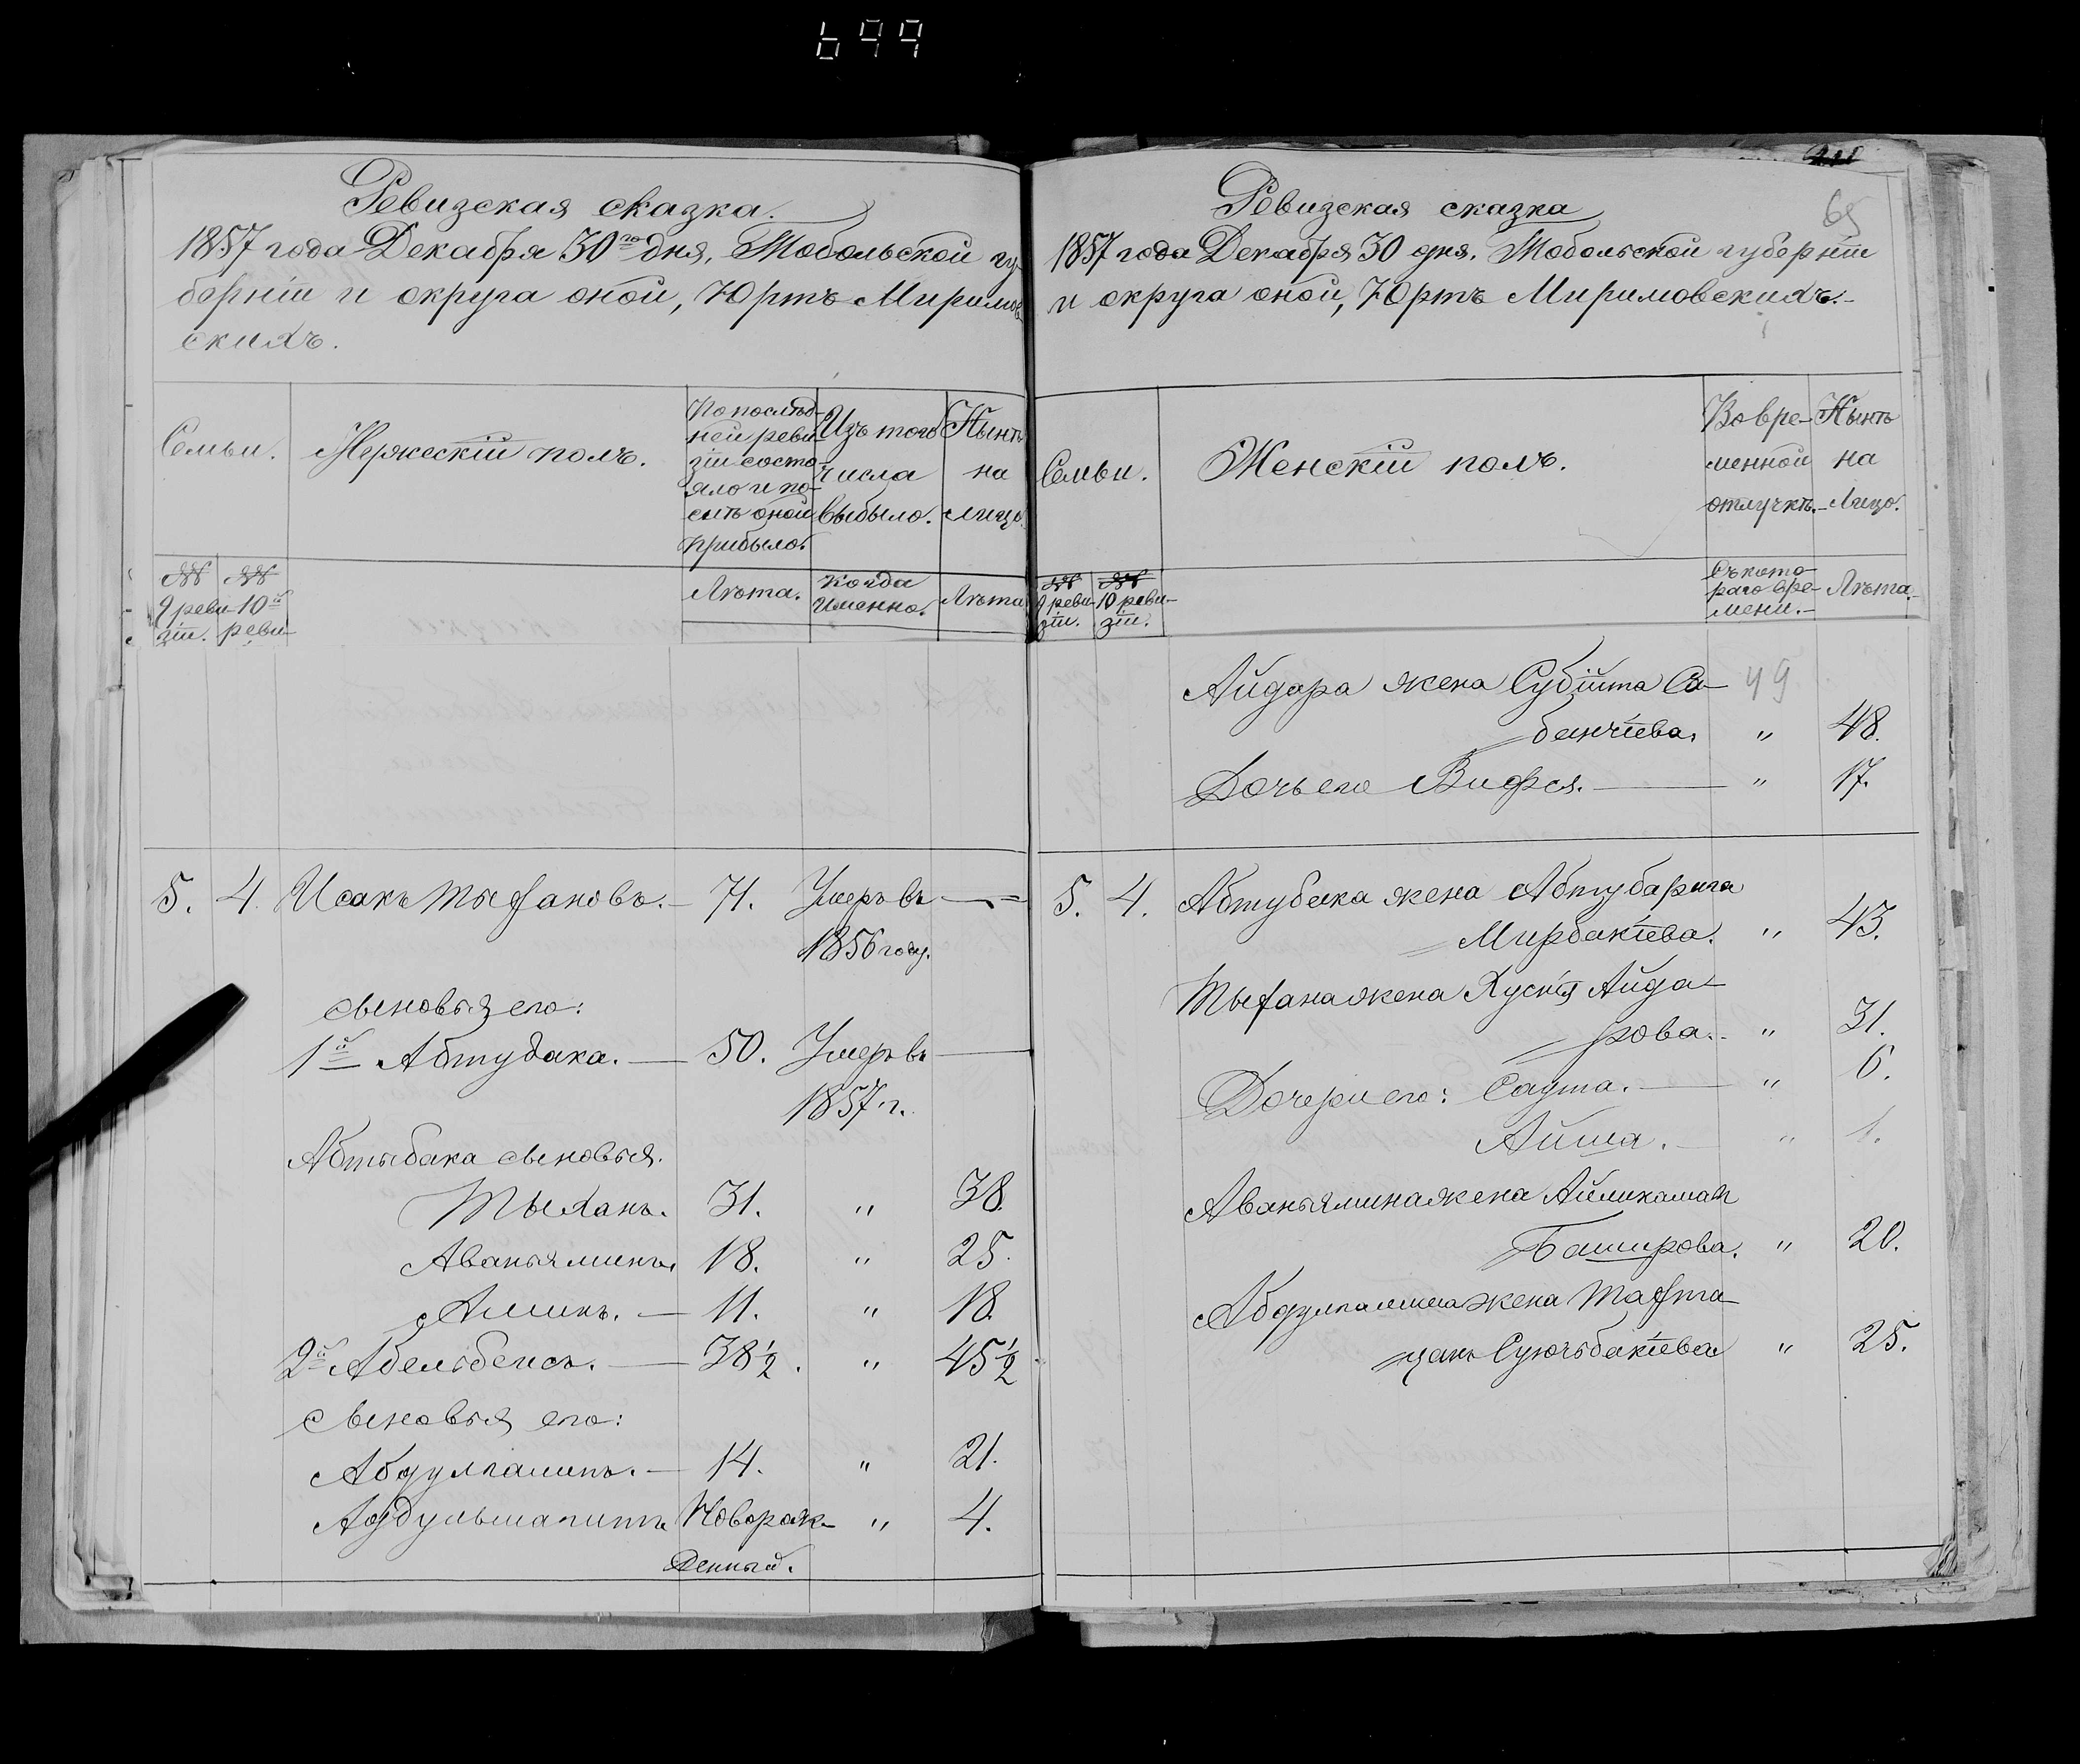 699
Ревизская сказка.
1857 года Декабря 30го дня, Тобольской гу-
берніи и округа оной, Юртъ Миримов-
скихъ.
Семьи.
Мужескій полъ.
По послѣд-
ней реви-
зіи состо-
яло и по-
слѣ оной
прибыло.
Изъ того
числа
выбыло.
Нынѣ
на
лицо.
№№
9 реви-
зіи.
№№
10й
реви-
Лѣта.
Когда
именно.
Лѣта
5. 4. Исакъ Тыхановъ. 71. Умеръ въ
1856 году.
сыновья его:
1й Абтубака. 50. Умеръ въ
1857 г.
Абтыбака сыновья.
Тыханъ. 31. " 38.
Аваньяминъ 18. " 25.
Аминъ. 11. " 18.
2й Абельбеисъ. 38½. " 45½
сыновья его:
Абдулгалимъ. 14. " 21.
Новорож- " 4.
денный.
Ревизская сказка
65
1857 года Декабря 30 дня, Тобольской губерніи
и округа оной, Юртъ Миримовскихъ.
Семьи.
Женскій полъ.
Во вре-
менной
отлучкѣ.
Нынѣ
на
Лицо.
№№
9 реви-
зіи.
№№
10 реви-
зіи.
Съ кото-
раго вре-
мени.
Лѣта.
Айдара жена Субіита Са- 49
банчіева. " 48.
Дочь его Вифся. " 17.
5. 4. Абтубака жена Абтубарига
Мирбакіева. " 43.
Тыхана жена Хуснія Айда-
рова. " 31.
Дочери его: Саута. " 6.
Айша. " 1.
Аваньямина жена Айликамал
Баширова. " 20.
жена Мафта-
" 25.